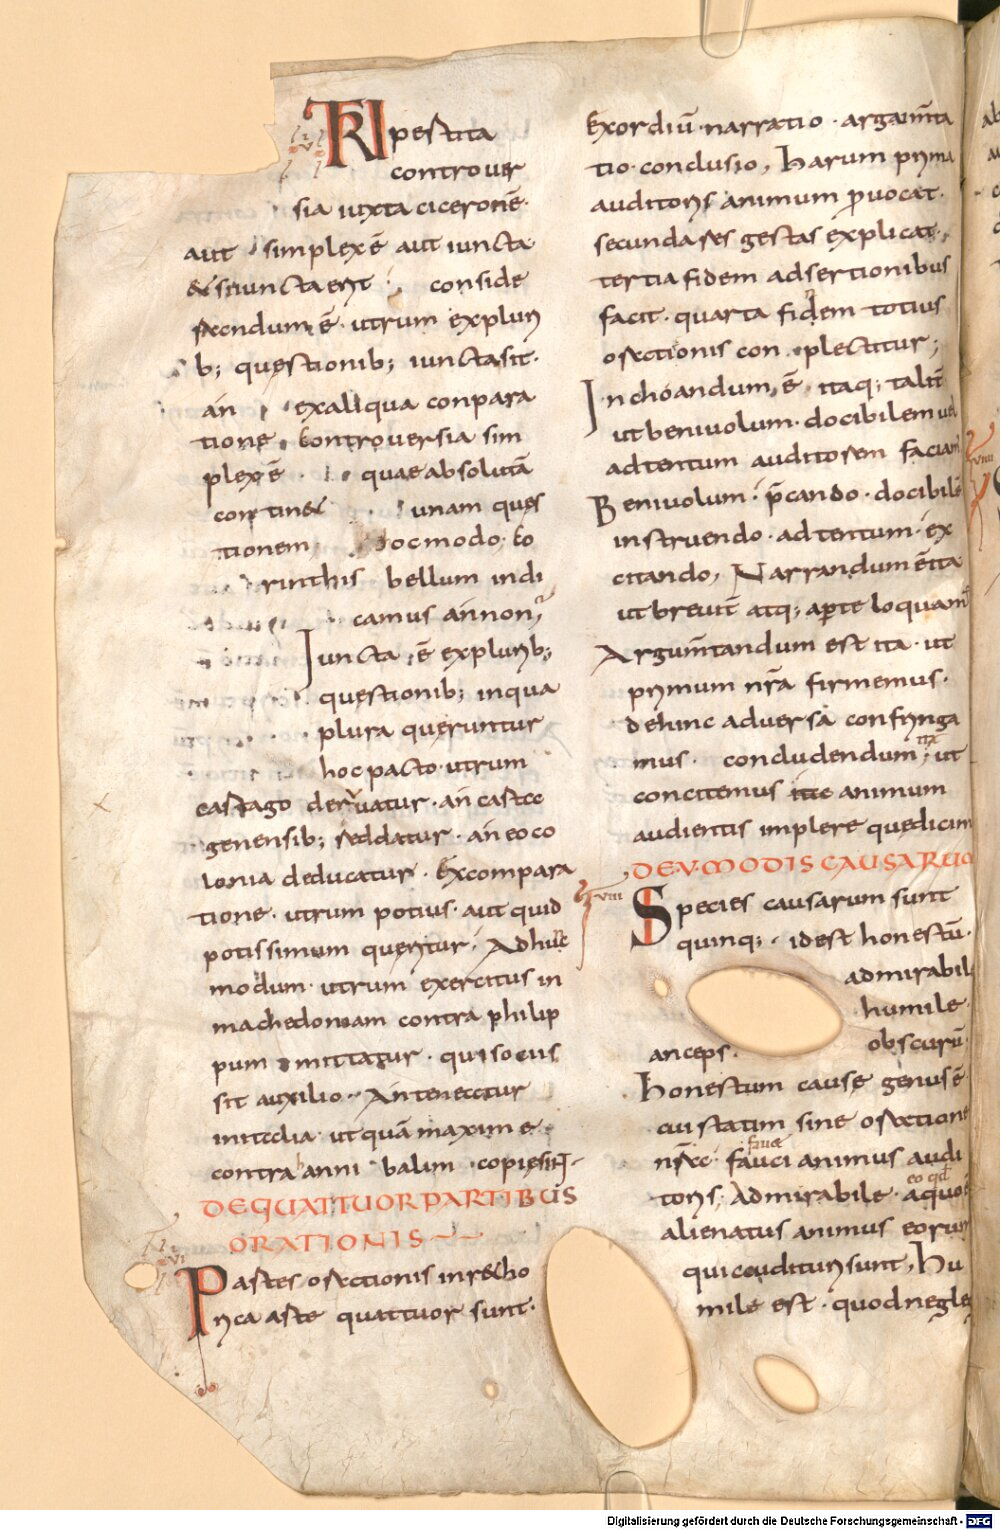 TRIpertita
controuer
sia iuxta ciceronē·
aut simplex ē aut iuncta
& si iuncta erit conside
randum ē· utrum ex pluri
b; questionib; iuncta sit·
an ex aliqua conpara
tione· Controuersia sim
plex ē· quae absolutā
continet unam ques
tionem hoc modo· co
rinthis bellum indi
camus an non;
Iuncta ē ex plurib;
questionib; in qua
plura queruntur
hoc pacto· utrum
cartago deruatur· an carta
genensib; reddatur· an eo co
lonia deducatur· Ex compara
tione· utrum potius· aut quid
potissimum queritur· Ad hunc
modum· utrum exercitus in
machedoniam contra philip
pum mittatur· qui sociis
sit auxilio· An teneatur
in italia· ut quā maxime
contra anni balim copie sint·
DE QUATTUOR PARTIBUS
ORATIONIS
Partes orationis in retho
rica arte quattuor sunt·
Exordiū· narratio· argumta
tio· conclusio, harum prima
auditoris animum puocat·
secunda res gestas explicat·
tertia fidem adsertionibus
facit· quarta finem totius
orationis conplectitur;
Inchoandum ē itaq; talit
ut beniuolum· docibilem uel
adtentum auditorem faciam
Beniuolum· pcando· docibilē
instruendo· adtentum· ex
citando, Narrandum ē ita
ut breuit atq; aperte loquam
Argumtandum est ita· ut
primum nrā firmemus·
dehinc aduersa confringa
mus· concludendum ita ut
concitemus animum
audientis implere que dicim
DE·V·MODIS CAUSARUM
VIII
Species causarum sunt
quinq;· id est honestū·
admirabil
humile·
anceps· obscurū
honestum cause genus ē
cui statim sine oratione
nrae faue
fauci animus audi
toris; Admirabile· a quo eo qđ
alienatus animus eorum
qui audituri sunt, Hu
mile est· quod negle
Digitalisierung gefördert durch die Deutsche Forschungsgemeinschaft - DFG